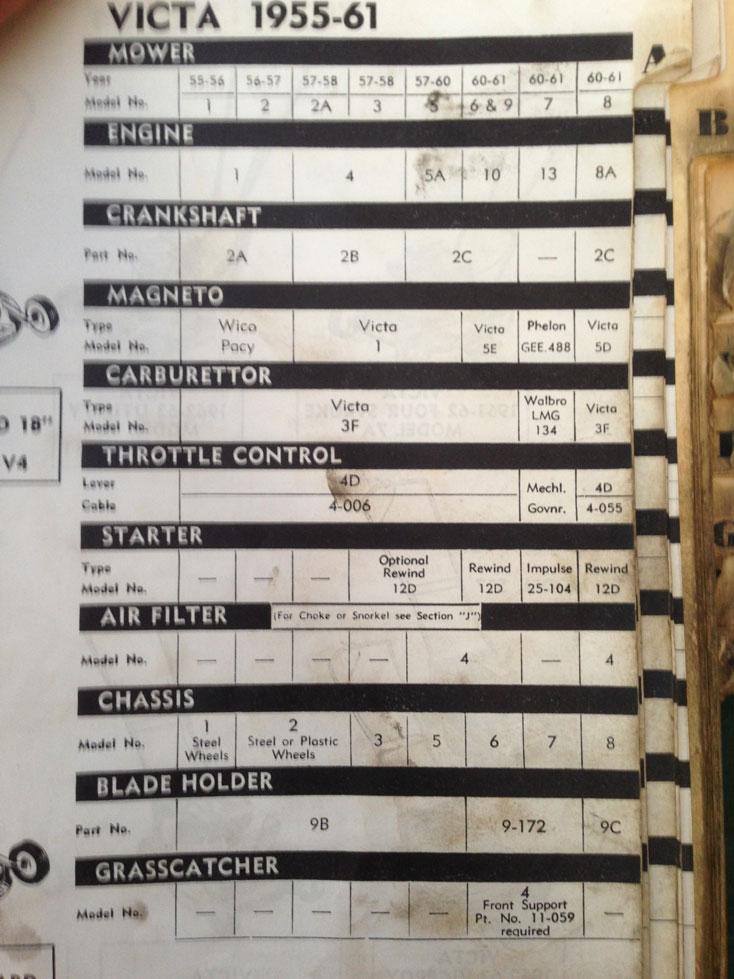 VICTA 1955-61
MOWER
Year 55-56 56-57 57-58 57-58 57-60 60-61 60-61 60-61
Model No. 1 2 2A 3 5 6 & 9 7 8
ENGINE
Model No. 1 4 5A 10 13 8A
CRANKSHAFT
Part No. 2A 2B 2C — 2C
MAGNETO
Type Wico Victa Victa Phelon Victa
Model No. Pacy 1 5E GEE.488 5D
CARBURETTOR
Type Victa Walbro LMG Victa
Model No. 3F 134 3F
THROTTLE CONTROL
Lever 4D Mechl. 4D
Cable 4-006 Govnr. 4-055
STARTER
Type — — — Optional Rewind Rewind Impulse Rewind
Model No. 12D 12D 25-104 12D
AIR FILTER (For Choke or Snorkel see Section "J")
Model No. — — — — 4 — 4
CHASSIS
1 2
Model No. Steel Steel or Plastic 3 5 6 7 8
Wheels Wheels
BLADE HOLDER
Part No. 9B 9-172 9C
GRASSCATCHER
4
Front Support
Model No. — — — — — Pt. No. 11-059 —
required
18"
V4
A
B